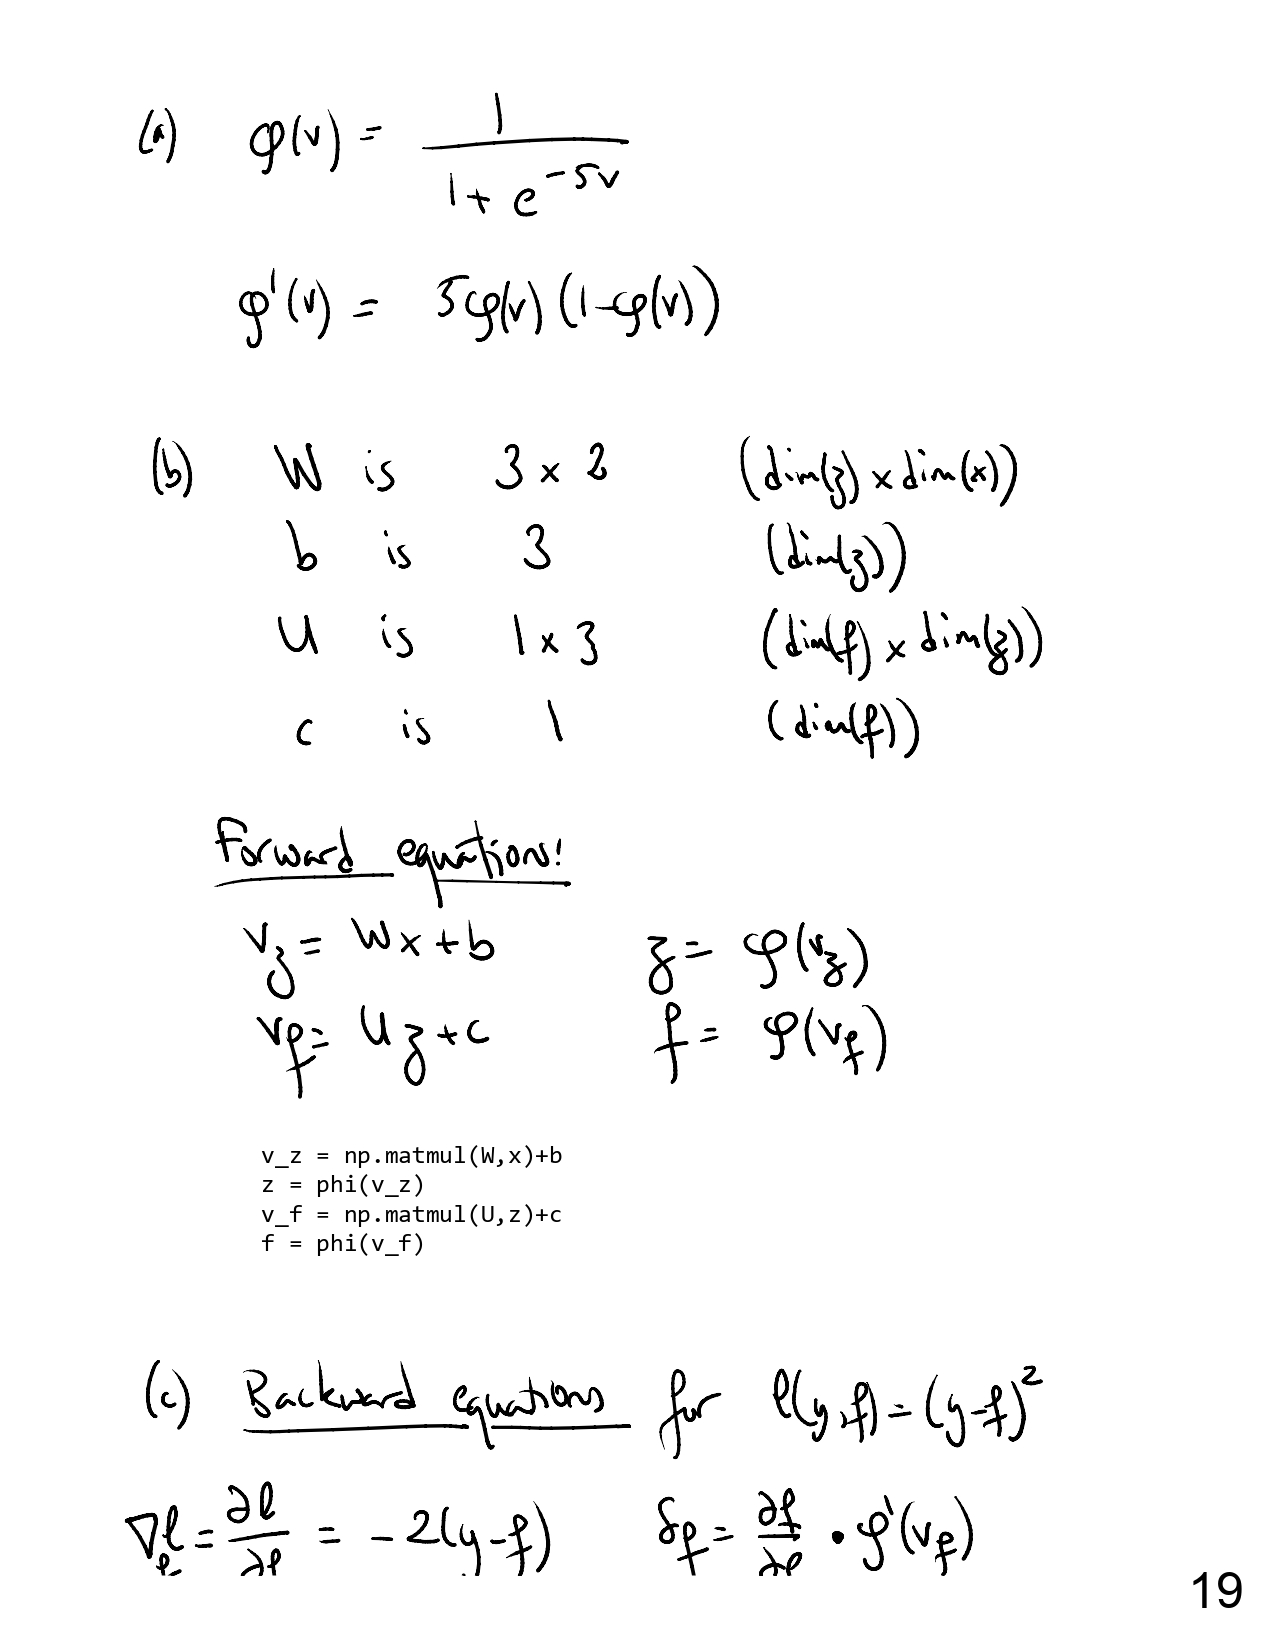 (a) φ(v) = 1 / (1 + e^{-5v})
φ'(v) = 5φ(v)(1-φ(v))
(b) W is 3 × 2 (dim(z) × dim(x))
b is 3 (dim(z))
U is 1 × 3 (dim(f) × dim(z))
c is 1 (dim(f))
Forward equations:
v_z = Wx + b z = φ(v_z)
v_f = Uz + c f = φ(v_f)
v_z = np.matmul(W,x)+b
z = phi(v_z)
v_f = np.matmul(U,z)+c
f = phi(v_f)
(c) Backward equations for ℓ(y,f) = (y-f)²
∇_f ℓ = ∂ℓ/∂f = -2(y-f) δ_f = ∂f/∂ℓ • φ'(v_f)
19